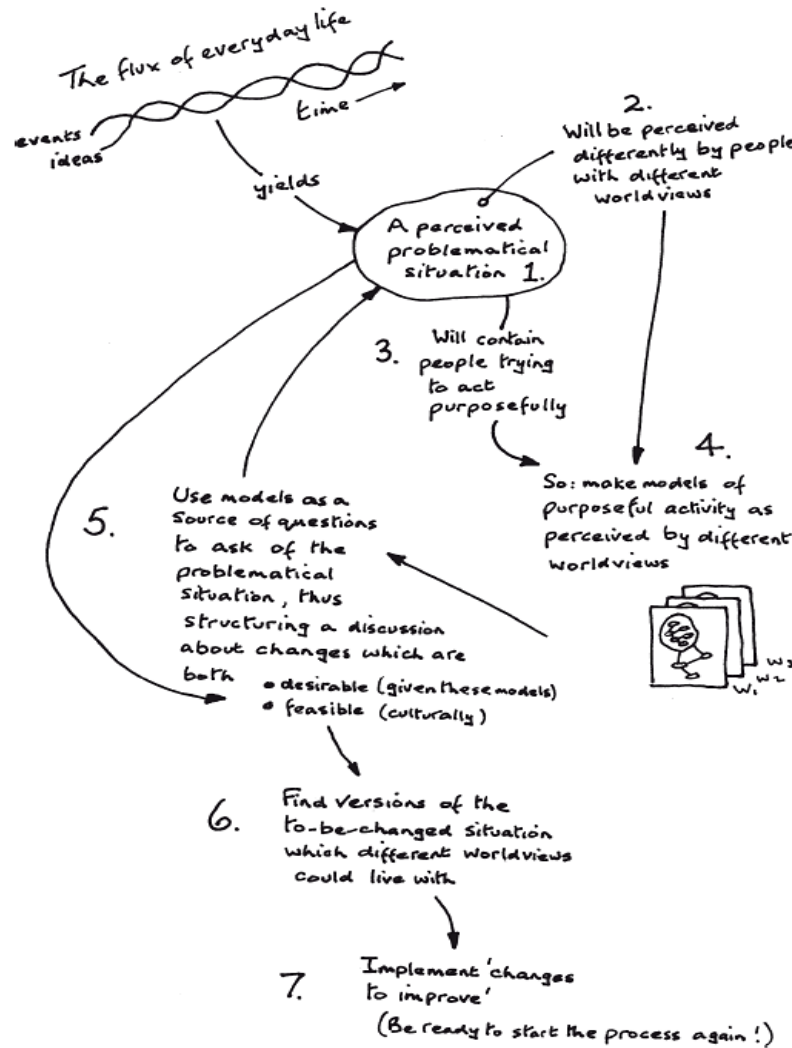 The flux of everyday life
events
ideas
time
yields
2.
Will be perceived
differently by people
with different
worldviews
A perceived
problematical
situation 1.
3.
Will contain
people trying
to act
purposefully
4.
So: make models of
purposeful activity as
perceived by different
worldviews
W1
W2
W3
5.
Use models as a
source of questions
to ask of the
problematical
situation, thus
structuring a discussion
about changes which are
both
• desirable (given these models)
• feasible (culturally)
6.
Find versions of the
to-be-changed situation
which different worldviews
could live with
7.
Implement 'changes
to improve'
(Be ready to start the process again!)